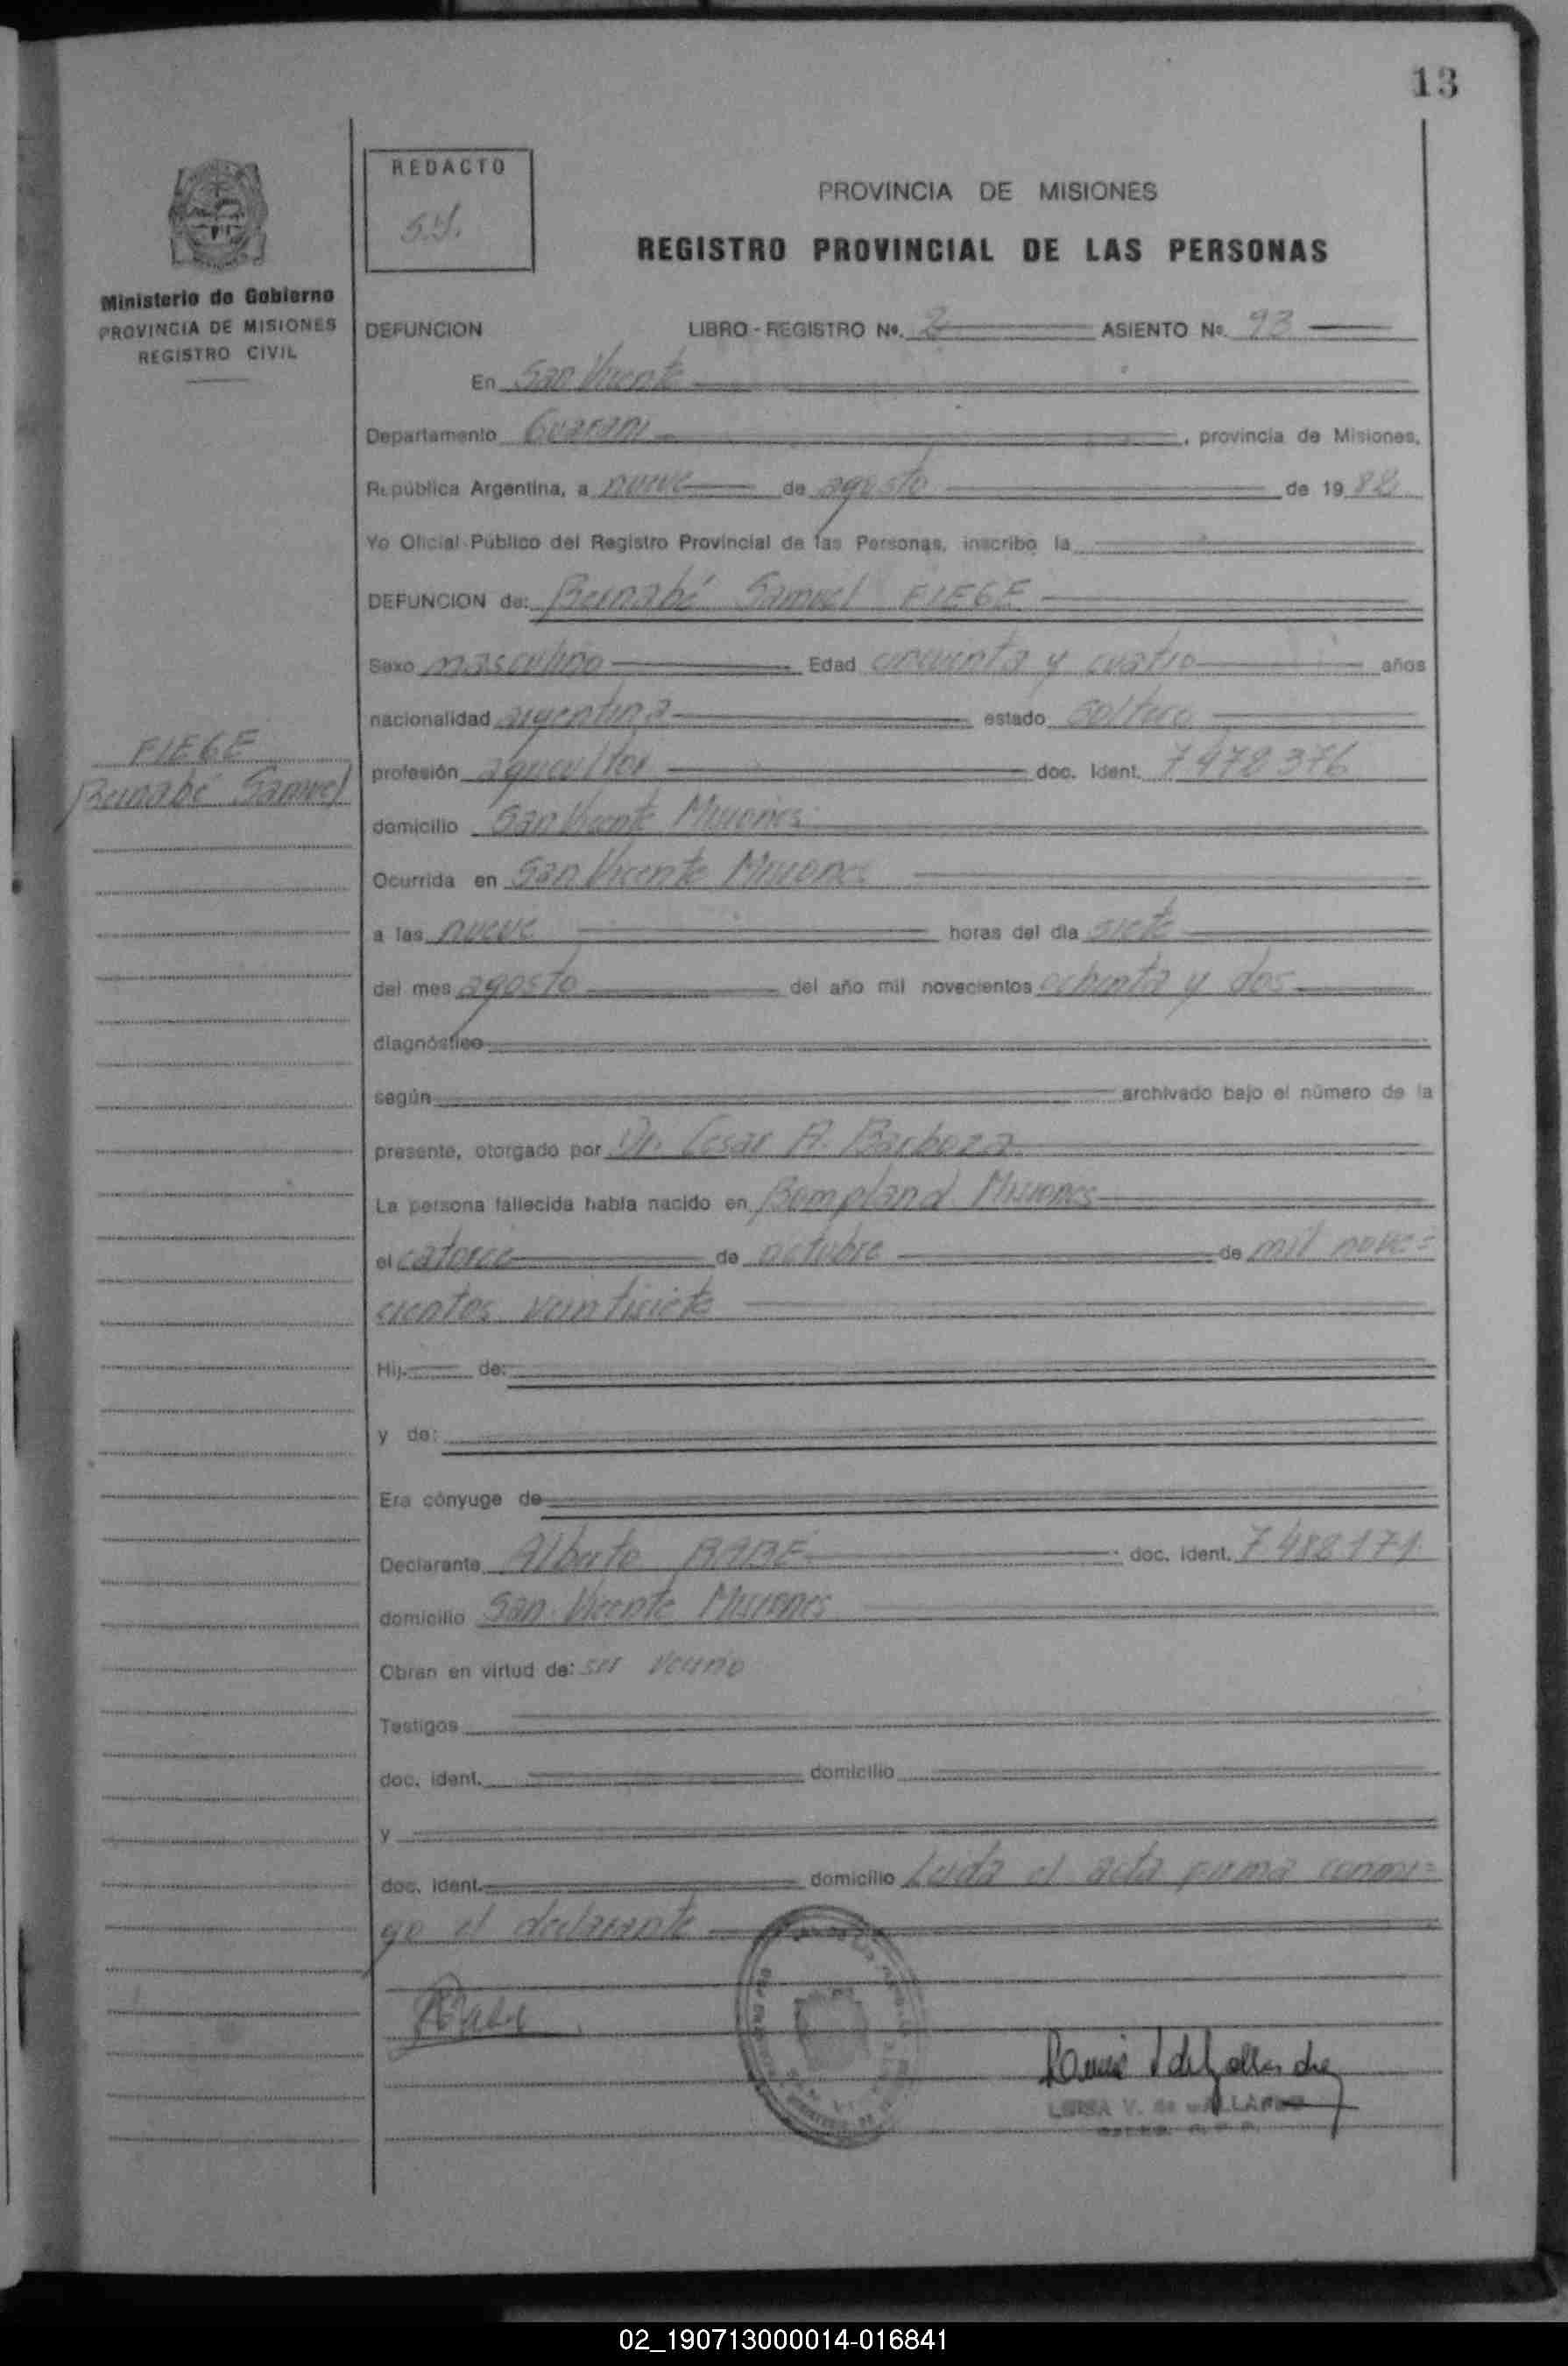 13
REDACTO
S.Y.
PROVINCIA DE MISIONES
REGISTRO PROVINCIAL DE LAS PERSONAS
Ministerio de Gobierno
PROVINCIA DE MISIONES
REGISTRO CIVIL
DEFUNCION LIBRO - REGISTRO Nº. 2 ASIENTO Nº. 93
En San Vicente
Departamento Guaraní, provincia de Misiones,
República Argentina, a nueve de agosto de 19 82
Yo Oficial Público del Registro Provincial de las Personas, inscribo la
DEFUNCION de: Bernabé Samuel FIEGE
Sexo masculino Edad cincuenta y cuatro años
nacionalidad argentina estado soltero
FIEGE
Bernabé Samuel
profesión agricultor doc. Ident. 7478376
domicilio San Vicente Misiones
Ocurrida en San Vicente Misiones
a las nueve horas del dia siete
del mes agosto del año mil novecientos ochenta y dos
diagnóstico
según archivado bajo el número de la
presente, otorgado por Dr. Cesar A. Barboza
La persona fallecida habia nacido en Bompland Misiones
el catorce de octubre de mil nove=
cientos veintisiete
Hij. de:
y de:
Era cónyuge de
Declarante Alberto RABE doc. ident. 7482171
domicilio San Vicente Misiones
Obran en virtud de: ser vecino
Testigos
doc. ident. domicilio
y
doc. ident. domicilio Leida el acta firma conmi=
go el declarante
LUISA V. de GALLARDO
02_190713000014-016841